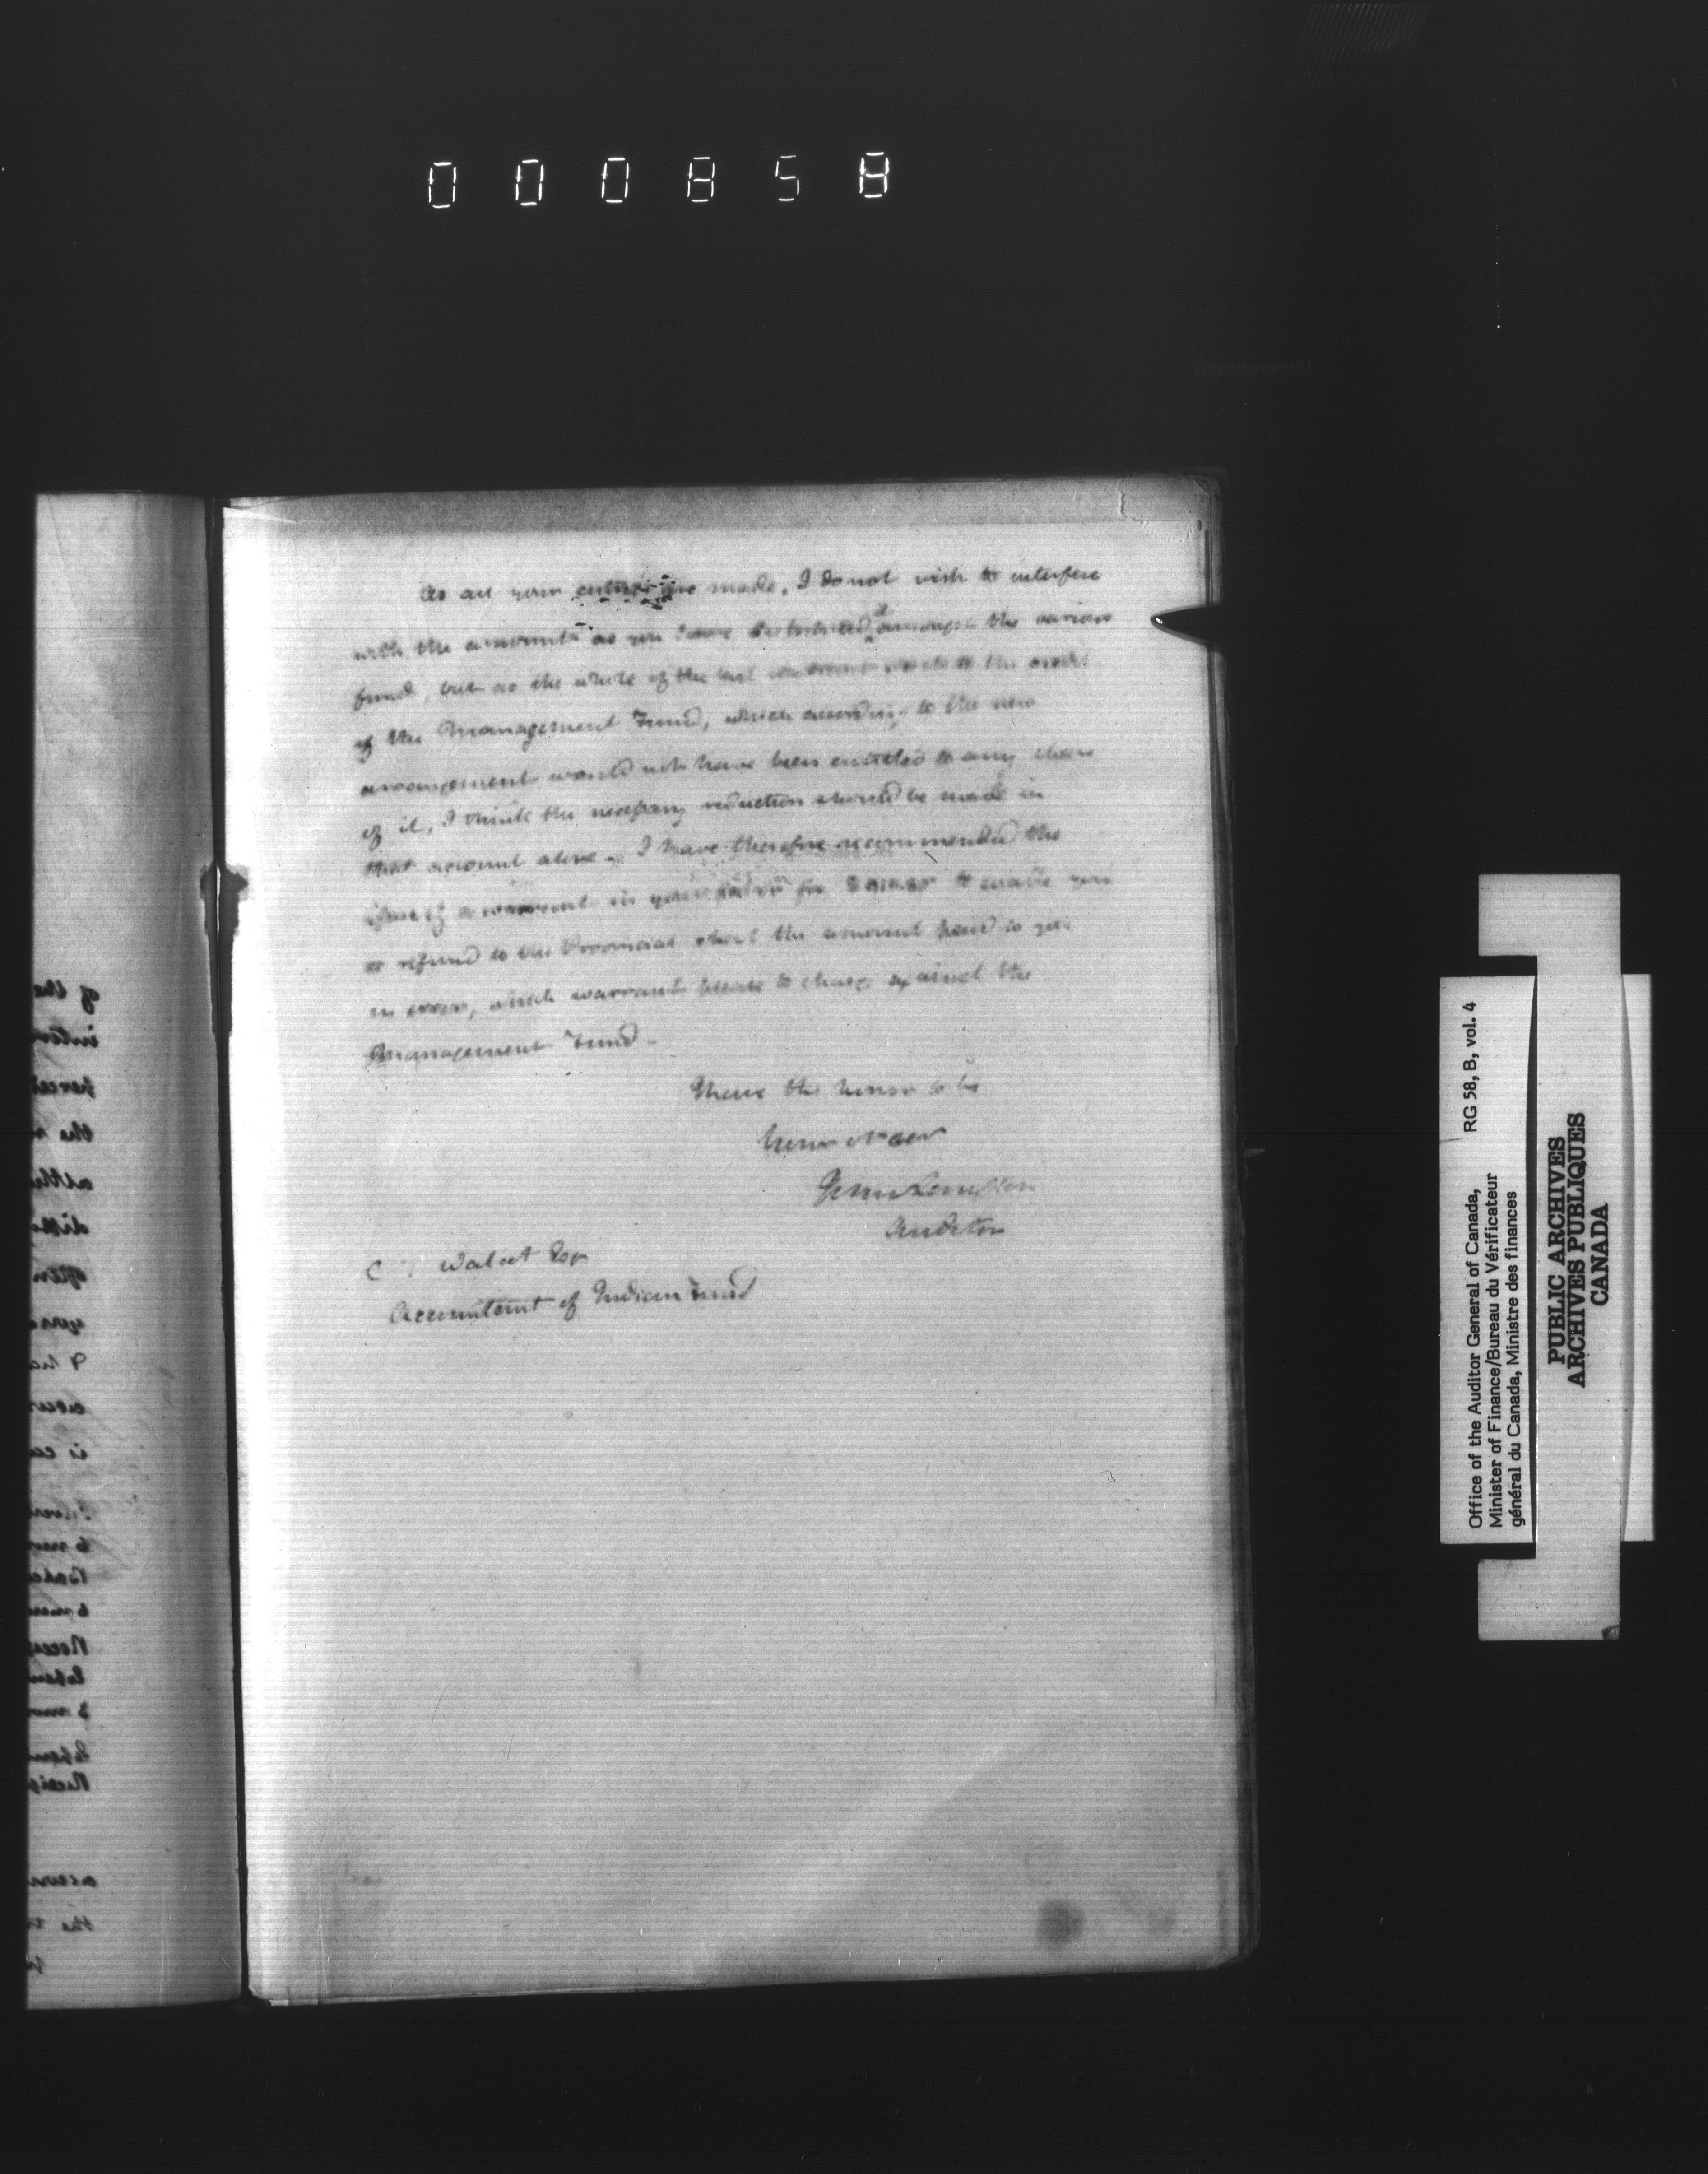 000858
As all your entries are made, I do not wish to interfere
with the amount as you have distributed it amongst the various
fund, but as the whole of the last to the credit
of the Management Fund, which according to the new
arrangement would not have been entitled to any share
of it, I think the necessary reduction should be made in
that account alone. I have therefore recommended the
issue of a warrant in your favor for to enable you
to refund to the Provincial the amount paid to you
in error, which warrant please to charge against the
Management Fund -
I have the honor to be
John Langton
Auditor
C T Walcot Esqr
Accountant of Indian Fund
Office of the Auditor General of Canada, RG 58, B, vol. 4
Minister of Finance/Bureau du Vérificateur
général du Canada, Ministre des finances
PUBLIC ARCHIVES
ARCHIVES PUBLIQUES
CANADA